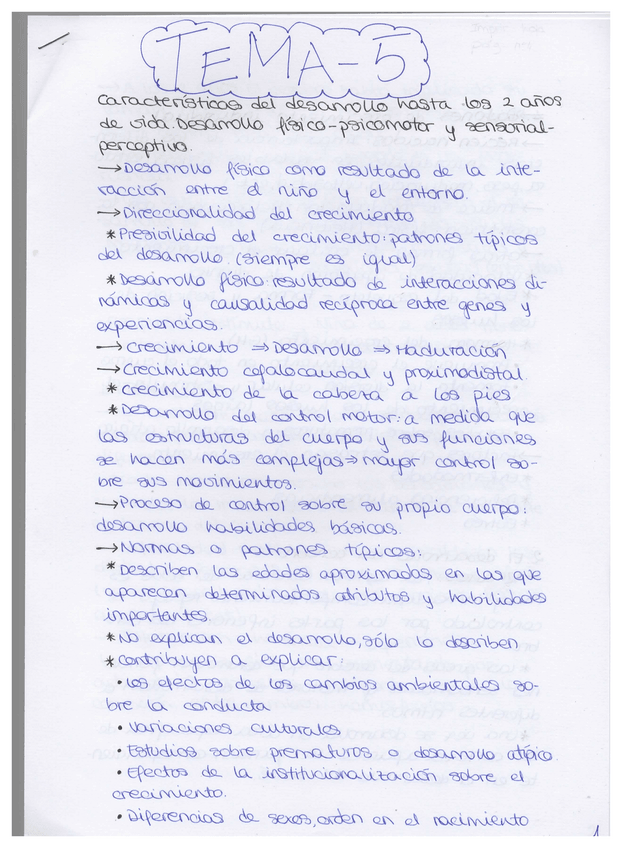 TEMA-5
Características del desarrollo hasta los 2 años
de vida. Desarrollo físico-psicomotor y sensorial-
perceptivo.
→Desarrollo físico como resultado de la inte-
racción entre el niño y el entorno.
→Direccionalidad del crecimiento
*Presivilidad del crecimiento: patrones típicos
del desarrollo. (siempre es igual)
*Desarrollo físico: resultado de interacciones di-
námicas y causalidad recíproca entre genes y
experiencias.
→Crecimiento ⇒ Desarrollo ⇒ Maduración
→Crecimiento cefalocaudal y proximodistal.
*crecimiento de la cabeza a los pies
*Desarrollo del control motor: a medida que
las estructuras del cuerpo y sus funciones
se hacen más complejas ⇒ mayor control so-
bre sus movimientos.
→Proceso de control sobre su propio cuerpo:
desarrollo habilidades básicas.
→Normas o patrones típicos:
*Describen las edades aproximadas en las que
aparecen determinados atributos y habilidades
importantes.
*No explican el desarrollo, sólo lo describen
*contribuyen a explicar:
·Los efectos de los cambios ambientales so-
bre la conducta
·Variaciones culturales
·Estudios sobre prematuros o desarrollo atípico.
·Efectos de la institucionalización sobre el
crecimiento.
·Diferencias de sexos, orden en el nacimiento
1